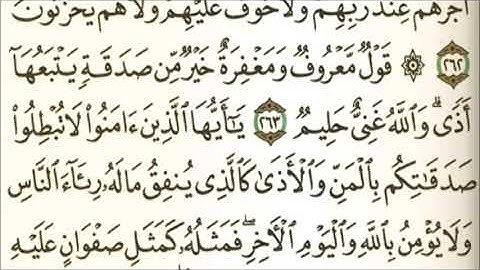 أَجْرُهُمْ عِندَ رَبِّهِمْ وَلَا خَوْفٌ عَلَيْهِمْ وَلَا هُمْ يَحْزَنُونَ
٢٦٢ ۞ قَوْلٌ مَّعْرُوفٌ وَمَغْفِرَةٌ خَيْرٌ مِّن صَدَقَةٍ يَتْبَعُهَا
أَذًى ۗ وَاللَّهُ غَنِيٌّ حَلِيمٌ ٢٦٣ يَا أَيُّهَا الَّذِينَ ءَامَنُوا لَا تُبْطِلُوا
صَدَقَاتِكُم بِالْمَنِّ وَالْأَذَىٰ كَالَّذِي يُنفِقُ مَالَهُ رِئَاءَ النَّاسِ
وَلَا يُؤْمِنُ بِاللَّهِ وَالْيَوْمِ الْآخِرِ ۖ فَمَثَلُهُ كَمَثَلِ صَفْوَانٍ عَلَيْهِ